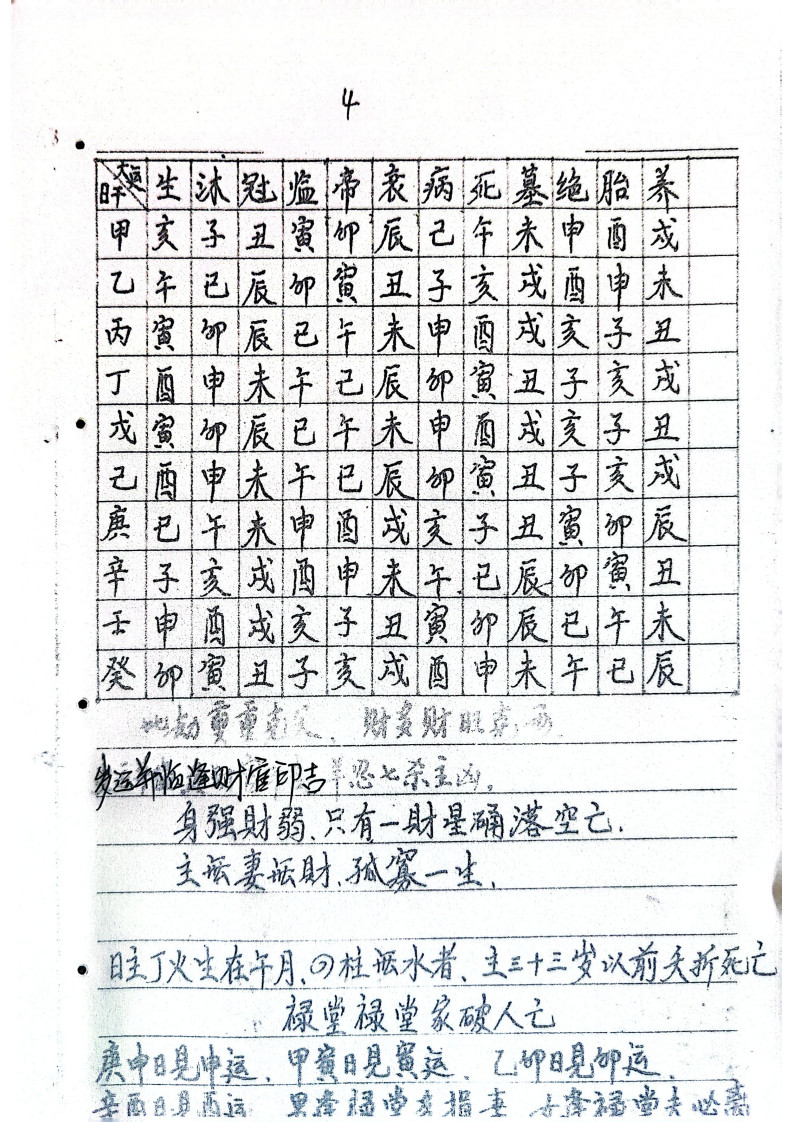 4
日干 大运 生 沐 冠 临 帝 衰 病 死 墓 绝 胎 养
甲 亥 子 丑 寅 卯 辰 巳 午 未 申 酉 戌
乙 午 巳 辰 卯 寅 丑 子 亥 戌 酉 申 未
丙 寅 卯 辰 巳 午 未 申 酉 戌 亥 子 丑
丁 酉 申 未 午 巳 辰 卯 寅 丑 子 亥 戌
戊 寅 卯 辰 巳 午 未 申 酉 戌 亥 子 丑
己 酉 申 未 午 巳 辰 卯 寅 丑 子 亥 戌
庚 巳 午 未 申 酉 戌 亥 子 丑 寅 卯 辰
辛 子 亥 戌 酉 申 未 午 巳 辰 卯 寅 丑
壬 申 酉 戌 亥 子 丑 寅 卯 辰 巳 午 未
癸 卯 寅 丑 子 亥 戌 酉 申 未 午 巳 辰
比劫重重 财多财旺
岁运并临逢财官印吉 羊忍七杀主凶.
身强財弱、只有一財星确落空亡.
主坛妻坛財、孤寡一生.
日主丁火生在午月、柱坛水者、主三十三岁以前夭折死亡
禄堂禄堂家破人亡
庚申日見申运、甲寅日見寅运、乙卯日見卯运、
辛酉日見酉运 男逢禄堂克损妻 女逢禄堂夫必